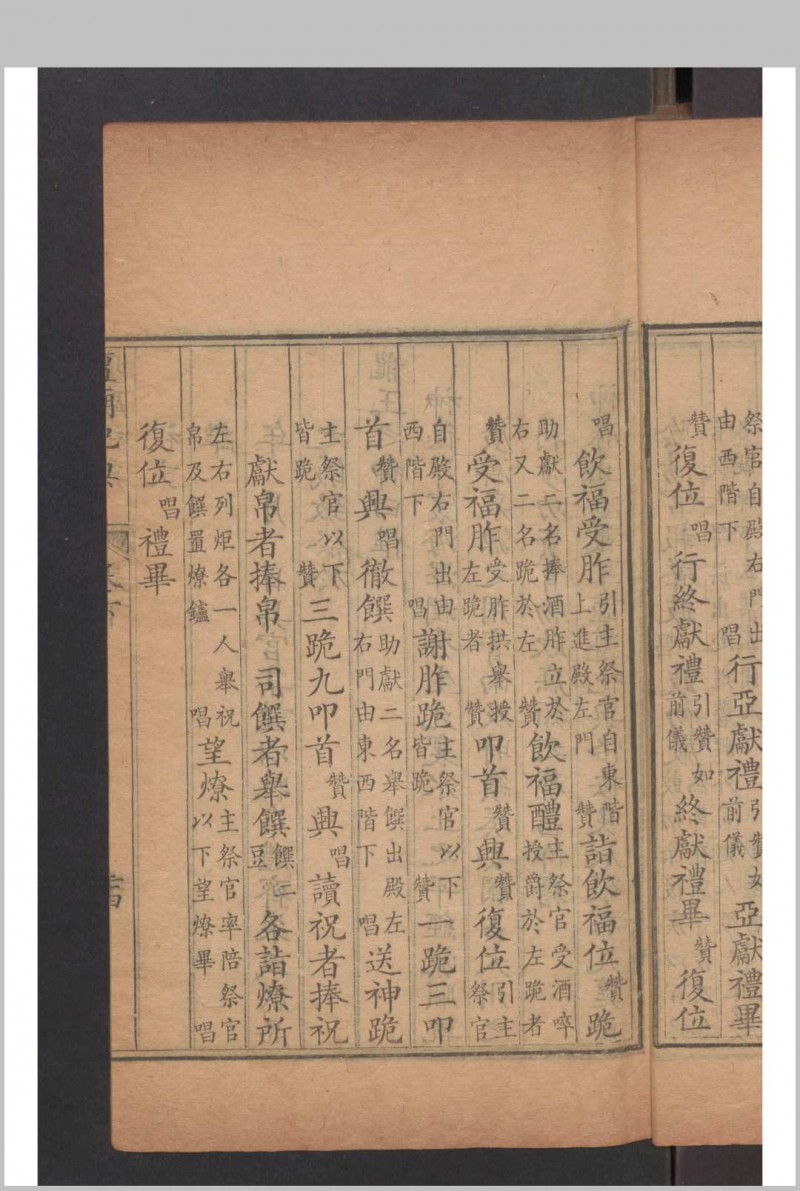 祭官自殿右門出由西階下唱行亞獻禮引贊如前儀亞獻禮畢
贊復位唱行終獻禮引贊如前儀終獻禮畢贊復位
唱飲福受胙引主祭官自東階上進殿左門贊詣飲福位贊跪
助獻二名捧酒胙立於右又二名跪於左贊飲福醴主祭官受酒啐授爵於左跪者
贊受福胙受胙拱舉授左跪者贊叩首贊興贊復位引主祭官
自殿右門出由西階下唱謝胙跪主祭官以下皆跪贊一跪三叩
首贊興唱徹饌助獻二名舉饌出殿左右門由東西階下唱送神跪
主祭官以下皆跪贊三跪九叩首贊興唱讀祝者捧祝
獻帛者捧帛司饌者舉饌饌二豆各詣燎所
左右列炬各一人舉祝帛及饌置燎鑪唱望燎主祭官率陪祭官以下望燎畢唱
復位唱禮畢